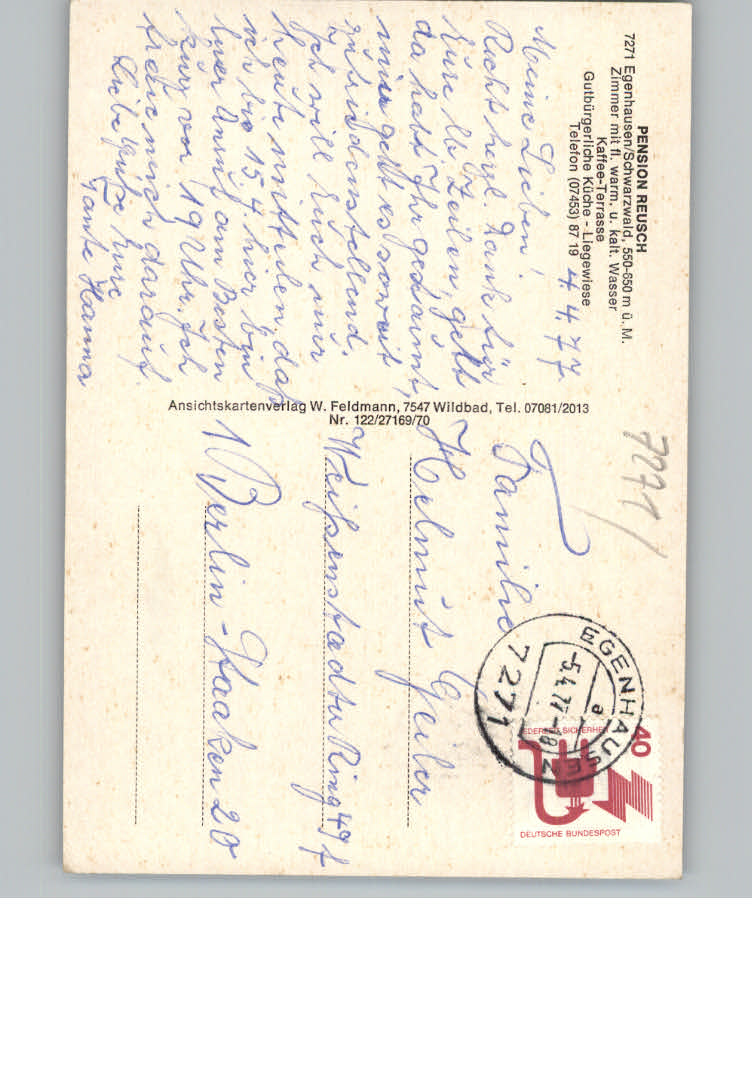 PENSION REUSCH
7271 Egenhausen/Schwarzwald, 550-650 m ü. M.
Zimmer mit fl. warm. u. kalt. Wasser
Kaffee-Terrasse
Gutbürgerliche Küche - Liegewiese
Telefon (07453) 87 19
4 4 77
Meine Lieben!
Recht herzl. Dank für
Eure lb Zeilen, gell
da habt Ihr gestaunt,
mir geht es soweit
zufriedenstellend.
Ich will Euch nur
heute mitteilen, daß
ich bis 15.4. hier bin
Euer Anruf am Besten
kurz vor 19 Uhr. Ich
freue mich darauf.
Liebe Grüße Eure
Tante Hanna
Ansichtskartenverlag W. Feldmann, 7547 Wildbad, Tel. 07081/2013
Nr. 122/27169/70
7271/
Familie
Helmut Geiler
Weißenstadter Ring 49 f
1 Berlin - Staaken 20
EGENHAUSEN
a
-5.4.77-18
7271
40
JEDERZEIT SICHERHEIT
DEUTSCHE BUNDESPOST